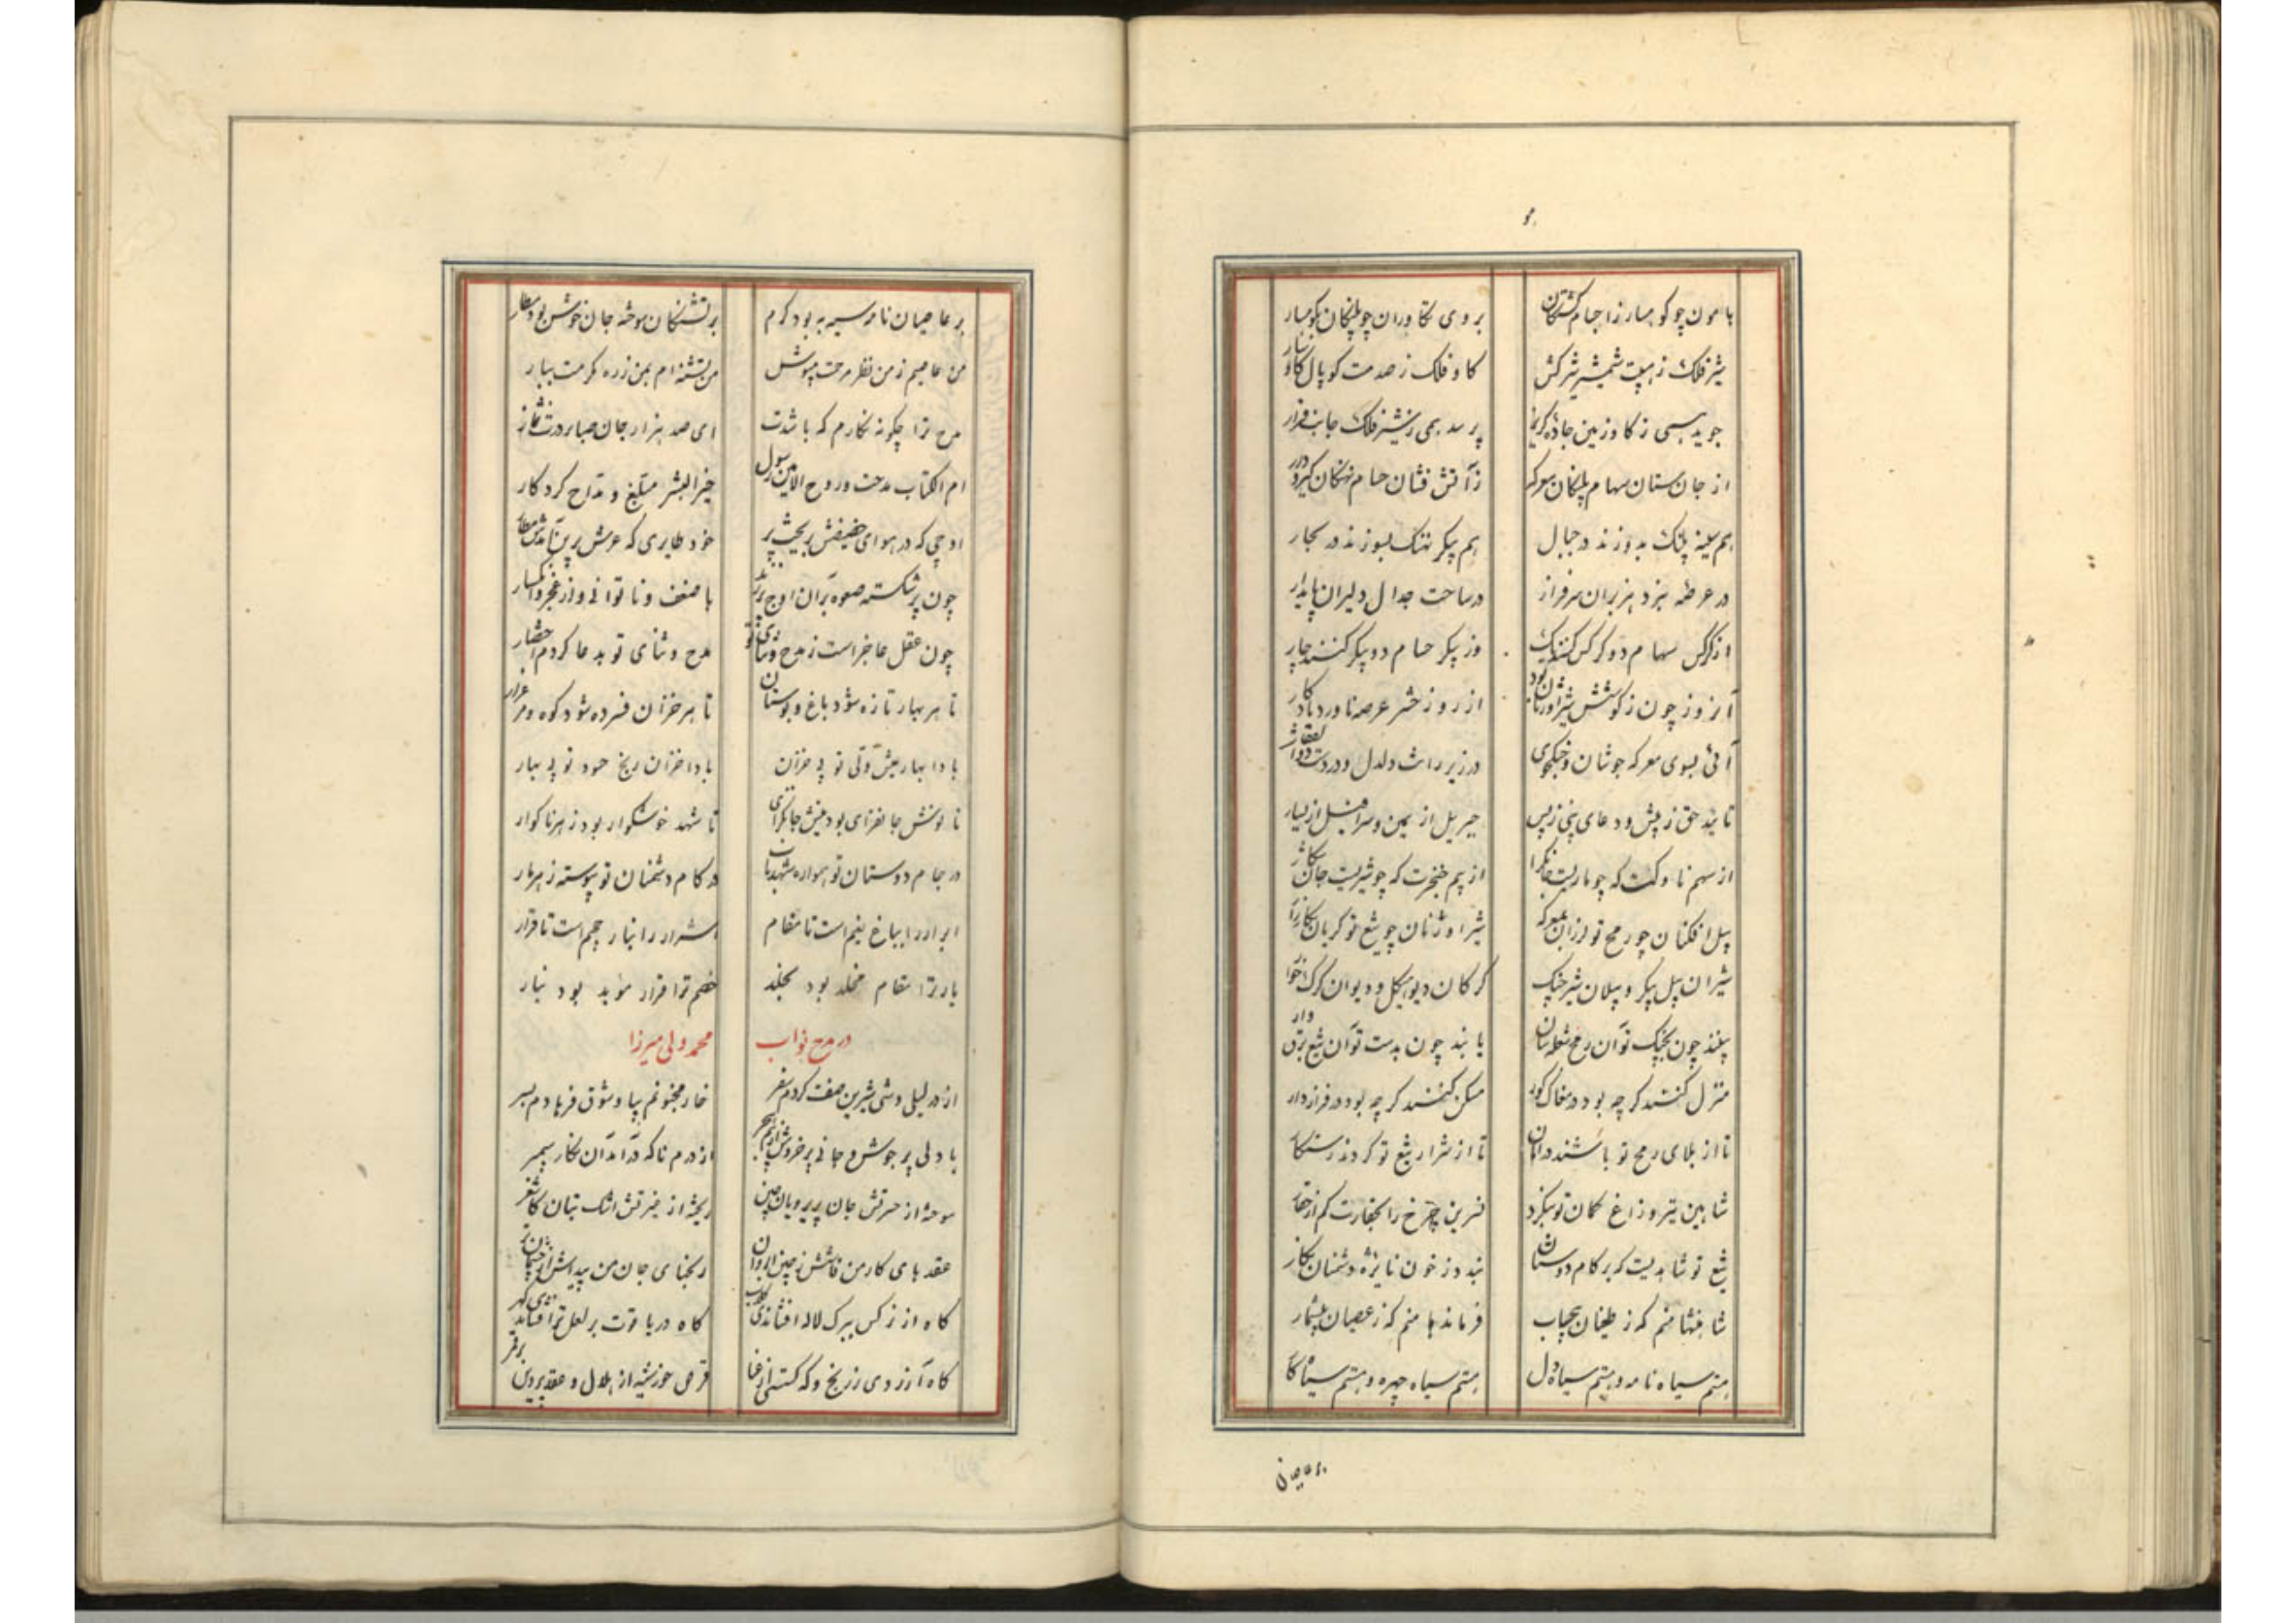 هامون چو کوهسار ز اجسام کشتگان
بر وی تکاوران چو پلنگان کوهسار
شیر فلک ز هیبت شمشیر شیرکش
کاو فلک ز صدمت کوپال کاوسار
جوید بسی ز کاو زمین جاده کریز
پرسد همی ز شیر فلک جانب فرار
از جان ستان سهام پلنگان معرکه
ز آتش فشان حسام نهنگان کیرودار
هم سینه پلنک بدوزند در جبال
هم پیکر نهنک بسوزند در بحار
در عرصه نبرد هزبران سرفراز
در ساحت جدال دلیران پایدار
از کرکس سهام دو کرکس کنند یک
وز پیکر حسام دو پیکر کنند چار
آنروز چون ز کوشش شیر اوژنان بود
از روز حشر عرصه ناورد یادکار
آئی بسوی معرکه جوشان و جنکجوی
در زیر رانت دلدل و در دست ذوالفقار
تائید حق ز پیش و دعای نبی ز پس
جبریل از یمین و سرافیل از یسار
از سهم ناوکت که چو ماریست جانکزا
از بیم خنجرت که چو شیریست جان شکار
پیل افکنان چو رمح تو لرزان بمعرکه
شیر اوژنان چو تیغ تو کریان بکارزار
شیران پیل پیکر و پیلان شیر چنک
کرکان دیو هیکل و دیوان کرک خوار
بینند چون بچنک تو آن رمح شعله سان
یابند چون بدست تو آن تیغ برق وار
منزل کنند کر چه بود در مغاک کور
مسکن کنند کر چه بود در فراز دار
تا از بلای رمح تو باشند در امان
تا از شرار تیغ تو کردند رستکار
شاهین تیر و زاغ کمان تو بنکرد
نسرین چرخ را بحقارت کم از حقار
تیغ تو شاهدیست که بر کام دوستان
بندد ز خون نایژه دشمنان نکار
شاهنشها منم که ز طغیان بیحساب
فرماندها منم که ز عصیان بیشمار
هستم سیاه نامه و هستم سیاه دل
هستم سیاه چهره و هستم سیاه کار
بر عاصیان
بر عاصیان نامه سیه به بود کرم
بر تشنکان سوخته جان خوش بود مطار
من عاصیم ز من نظر مرحمت مپوش
من تشنه ام بمن ز ره مکرمت ببار
مدح ترا چکونه نکارم که باشدت
ای صد هزار جان صبا در رهت نثار
ام الکتاب مدحت و روح الامین رسول
خیر البشر مبلغ و مداح کردکار
اوجی که در هوای حضیضش بریخت پر
خود طایری که عرش برین آمدش مطار
چون پر شکسته صعوه بر آن اوج پر زند
با ضعف و ناتوانی و از عجز و انکسار
چون عقل عاجز است ز مدح و ثنای تو
مدح و ثنای تو بدعا کردم اختصار
تا هر بهار تازه شود باغ و بوستان
تا هر خزان فسرده شود کوه و مرغزار
بادا بهار عیش ولی تو بی خزان
بادا خزان رنج حسود تو بی بهار
تا نوشش جانفزای بود نیش جانکزای
تا شهد خوشکوار بود زهر ناکوار
در جام دوستان تو همواره شهد ناب
در کام دشمنان تو پیوسته زهر مار
ابرار را بباغ نعیم است تا مقام
اشرار را بنار جحیم است تا قرار
یار ترا مقام مخلد بود بخلد
خصم ترا قرار مؤبد بود بنار
در مدح نواب
محمد ولی میرزا
از در لیلی وشی شیرین صفت کردم سفر
خار مجنونم بپا و شوق فرهادم بسر
با دلی پر جوش و جانی پر خروش از بیم هجر
از درم ناکه درآمد آن نکار سیمبر
سوخته از حسرتش جان پریرویان چین
ریخته از غیرتش اشک بتان کاشغر
عقدهای کار من فاش از چین ابروان
رنجهای جان من پیداش از چشمان تر
کاه از نرکس ببرک لاله افشاندی کلاب
کاه در یاقوت بر لعل تر افشاندی کهر
کاه آزردی ز رنج و که کسستی از عنا
قرص خورشید از هلال و عقد پروین بر قمر